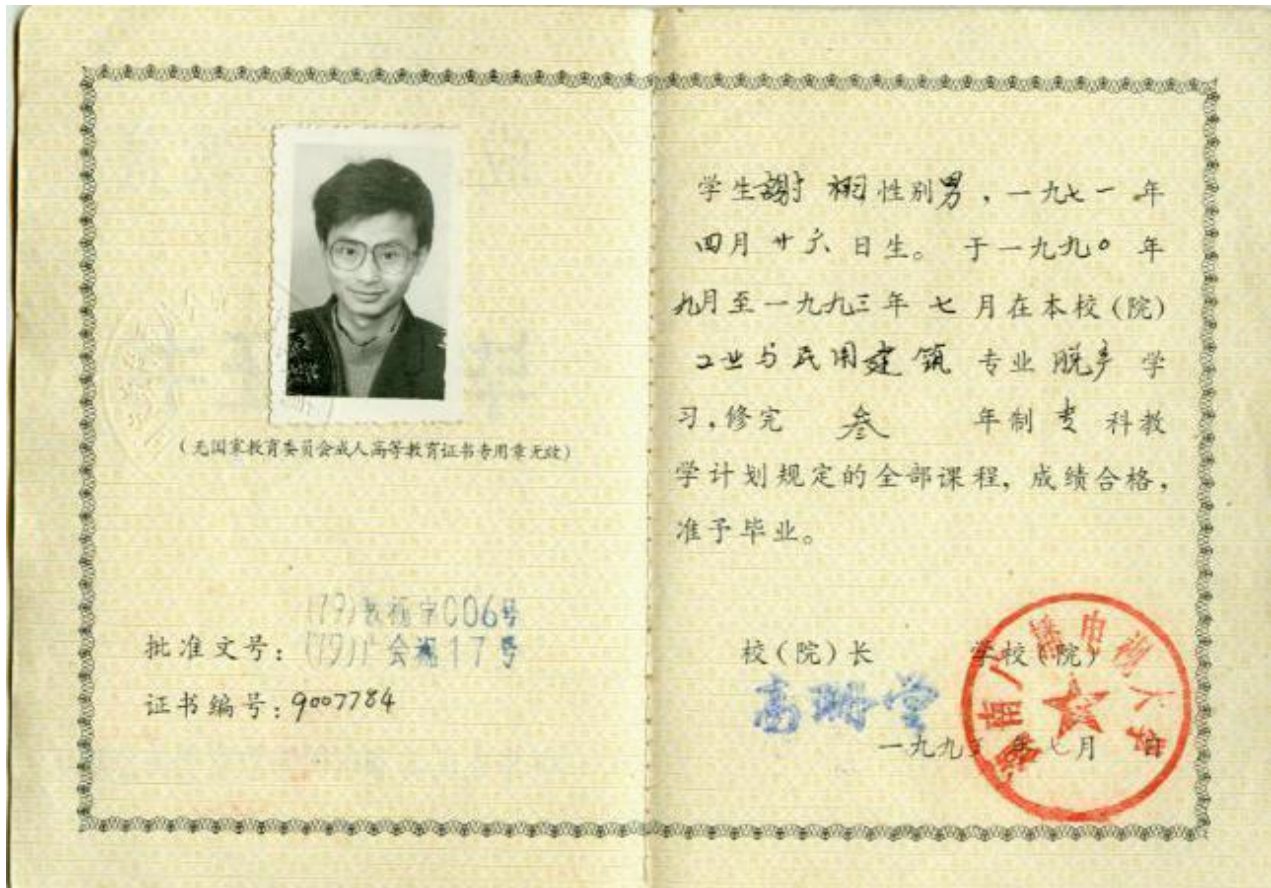 (无国家教育委员会成人高等教育证书专用章无效)
(79)教视字006号
批准文号: (79)广会视17号
证书编号: 9007784
学生謝栩性别男，一九七一年
四月廿六日生。于一九九〇年
九月至一九九三年七月在本校(院)
工业与民用建筑专业脱产学
习，修完叁年制专科教
学计划规定的全部课程，成绩合格，
准予毕业。
校(院)长 学校(院)
高 堂
一九九三年七月 日
湖南广播电视大学